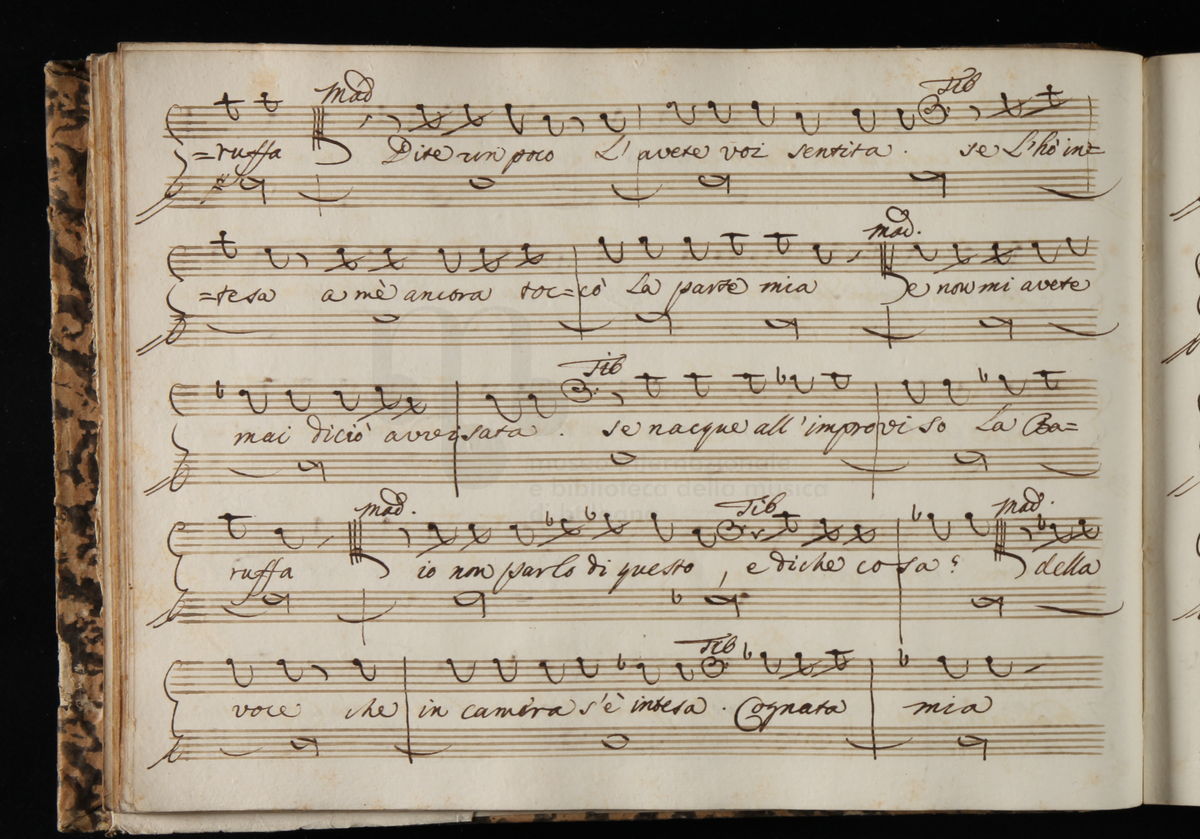 Mad Tib
=ruffa Dite un poco L'avete voi sentita. se L'hò in=
Mad.
=tesa a mè ancora toc=cò La parte mia Se non mi avete
Tib
mai diciò avvisata. se nacque all'improviso La Ba=
Mad. Tib Mad.
ruffa io non parlo di questo, e di che cosa? della
Tib
voce che in camera s'è intesa. Cognata mia
museo internazionale
e biblioteca della musica
di bologna